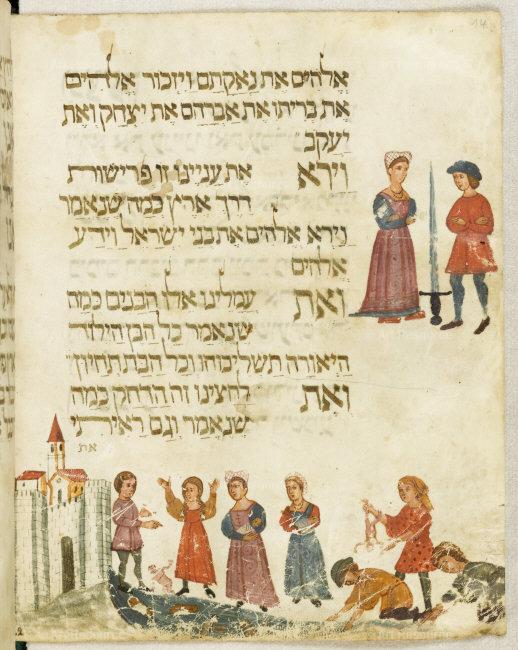 14
אלהים את נאקתם ויזכור אלהים
את בריתו את אברהם את יצחק ואת
יעקב
וירא את עניינו זו פרישות
דרך ארץ כמה שנאמר
וירא אלהים את בני ישראל וידע
אלהים
ואת עמלינו אלו הבנים כמה
שנאמר כל הבן הילוד
היאורה תשליכוהו וכל הבת תחיון
ואת לחצינו זה הדחק כמה
שנאמר וגם ראיתי
את